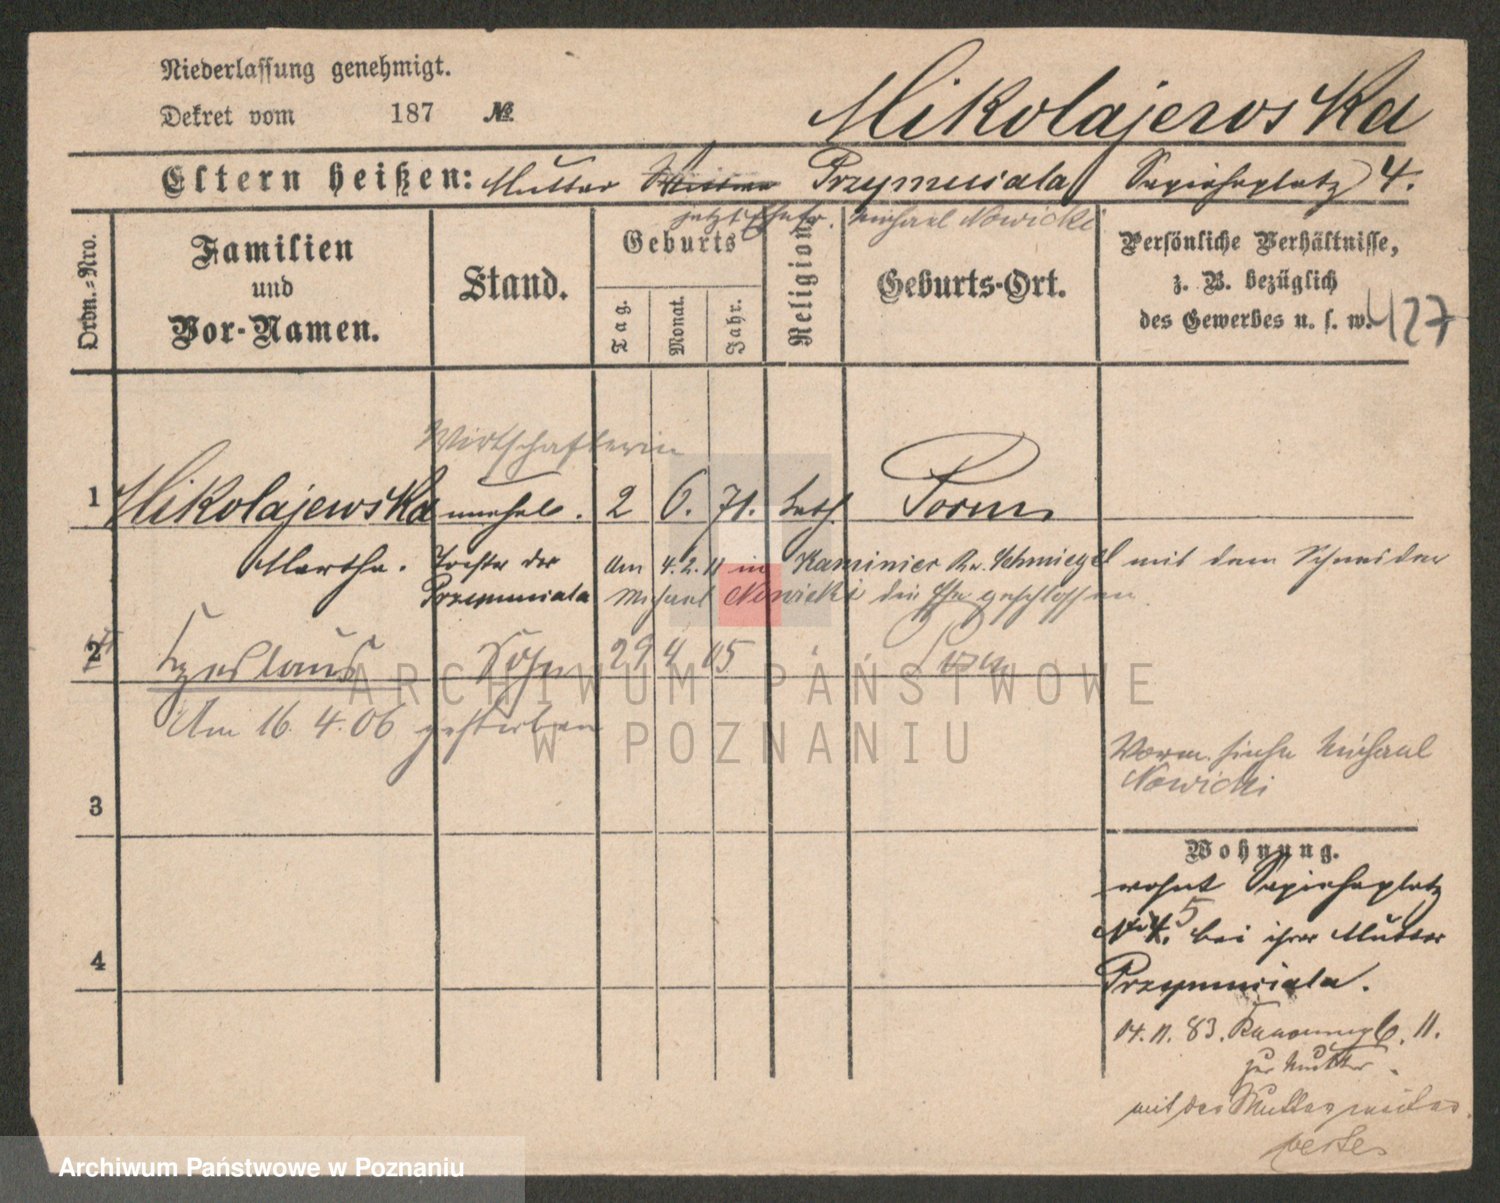 Niederlassung genehmigt.
Dekret vom 187 №
Mikolajewska
Eltern heißen: Mutter Przymusiala Sapiehaplatz 4.
jetzt Ehefr. Michael Nowicki
Ordn.-Nro.
Familien und Vor-Namen.
Stand.
Geburts
Tag.
Monat.
Jahr.
Religion.
Geburts-Ort.
Persönliche Verhältnisse, z. B. bezüglich des Gewerbes u. s. w.
427
Wirtschafterin
1 Mikolajewska unehel. 2 6. 71. kath. Posen
Martha. Tochter der Am 4.2.11 in Kaminiec Kr. Schmiegel mit dem Schneider
Przymusiala Michael Nowicki die Ehe geschlossen
2 Czeslaus Sohn 29 4 05 " Posen
Am 16. 4. 06 gestorben
Verm. siehe Michael
Nowicki
3
Wohnung.
wohnt Sapiehaplatz
No 4. 5 bei ihrer Mutter
Przymusiala.
4
14. 11. 83. 11.
zur Mutter.
mit der Mutter
ARCHIWUM PAŃSTWOWE
W POZNANIU
Archiwum Państwowe w Poznaniu